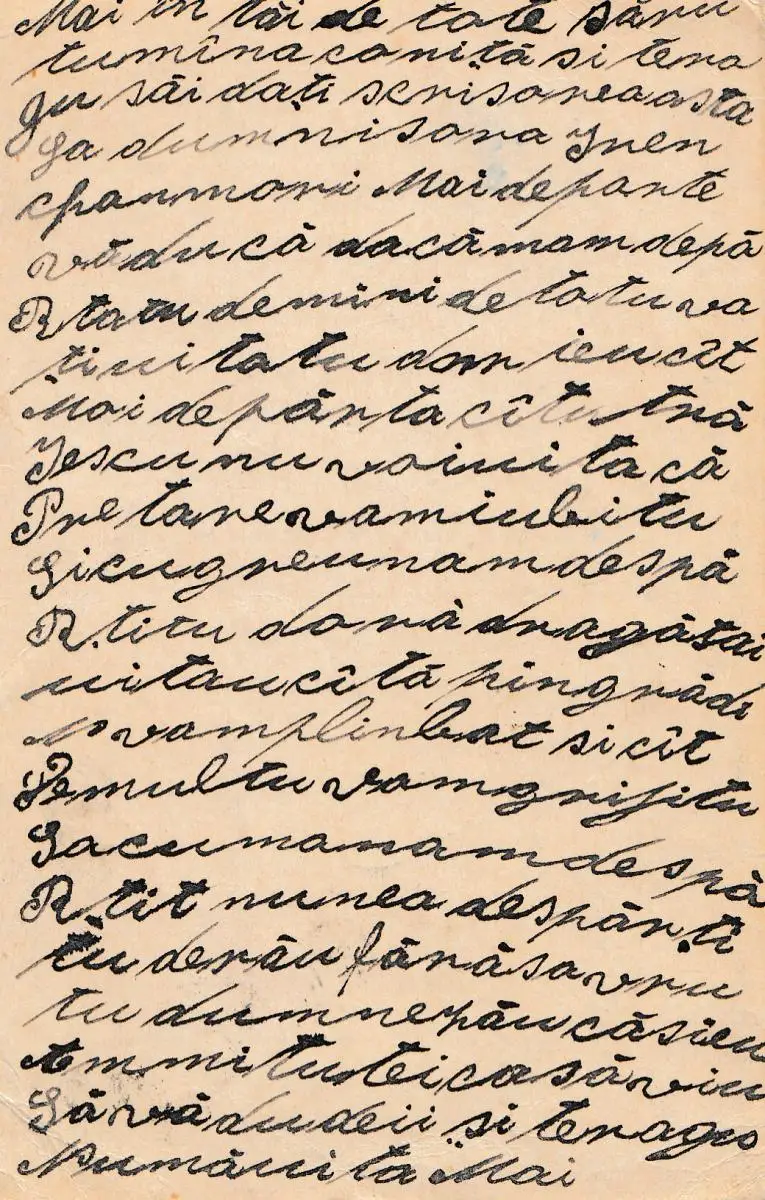 Mai în tâi de tote săru
tumîna coniță si tero
gu săi dați scrisorea asta
la dumnisora Iren
Mai departe
vădu că dacă mam depă
Rtatu demini de totu va
ți uitatu dar ieu cît
Mai depărta cîtu tră
Iescu nu voi uita că
Pre tare vam iubitu
Si cu greu nam despă
Rțitu doră dragă tăi
uitau cîtă pin grădi
No vam plinbat si cît
Pe multu vam grijitu
Sacuma nam despă
Rțit nu nea despărți
tu de rău fără sa vru
tu dumnezău că si eu
am mitu tei ca să viu
Să vă du deii si te rago
Numă uita Mai